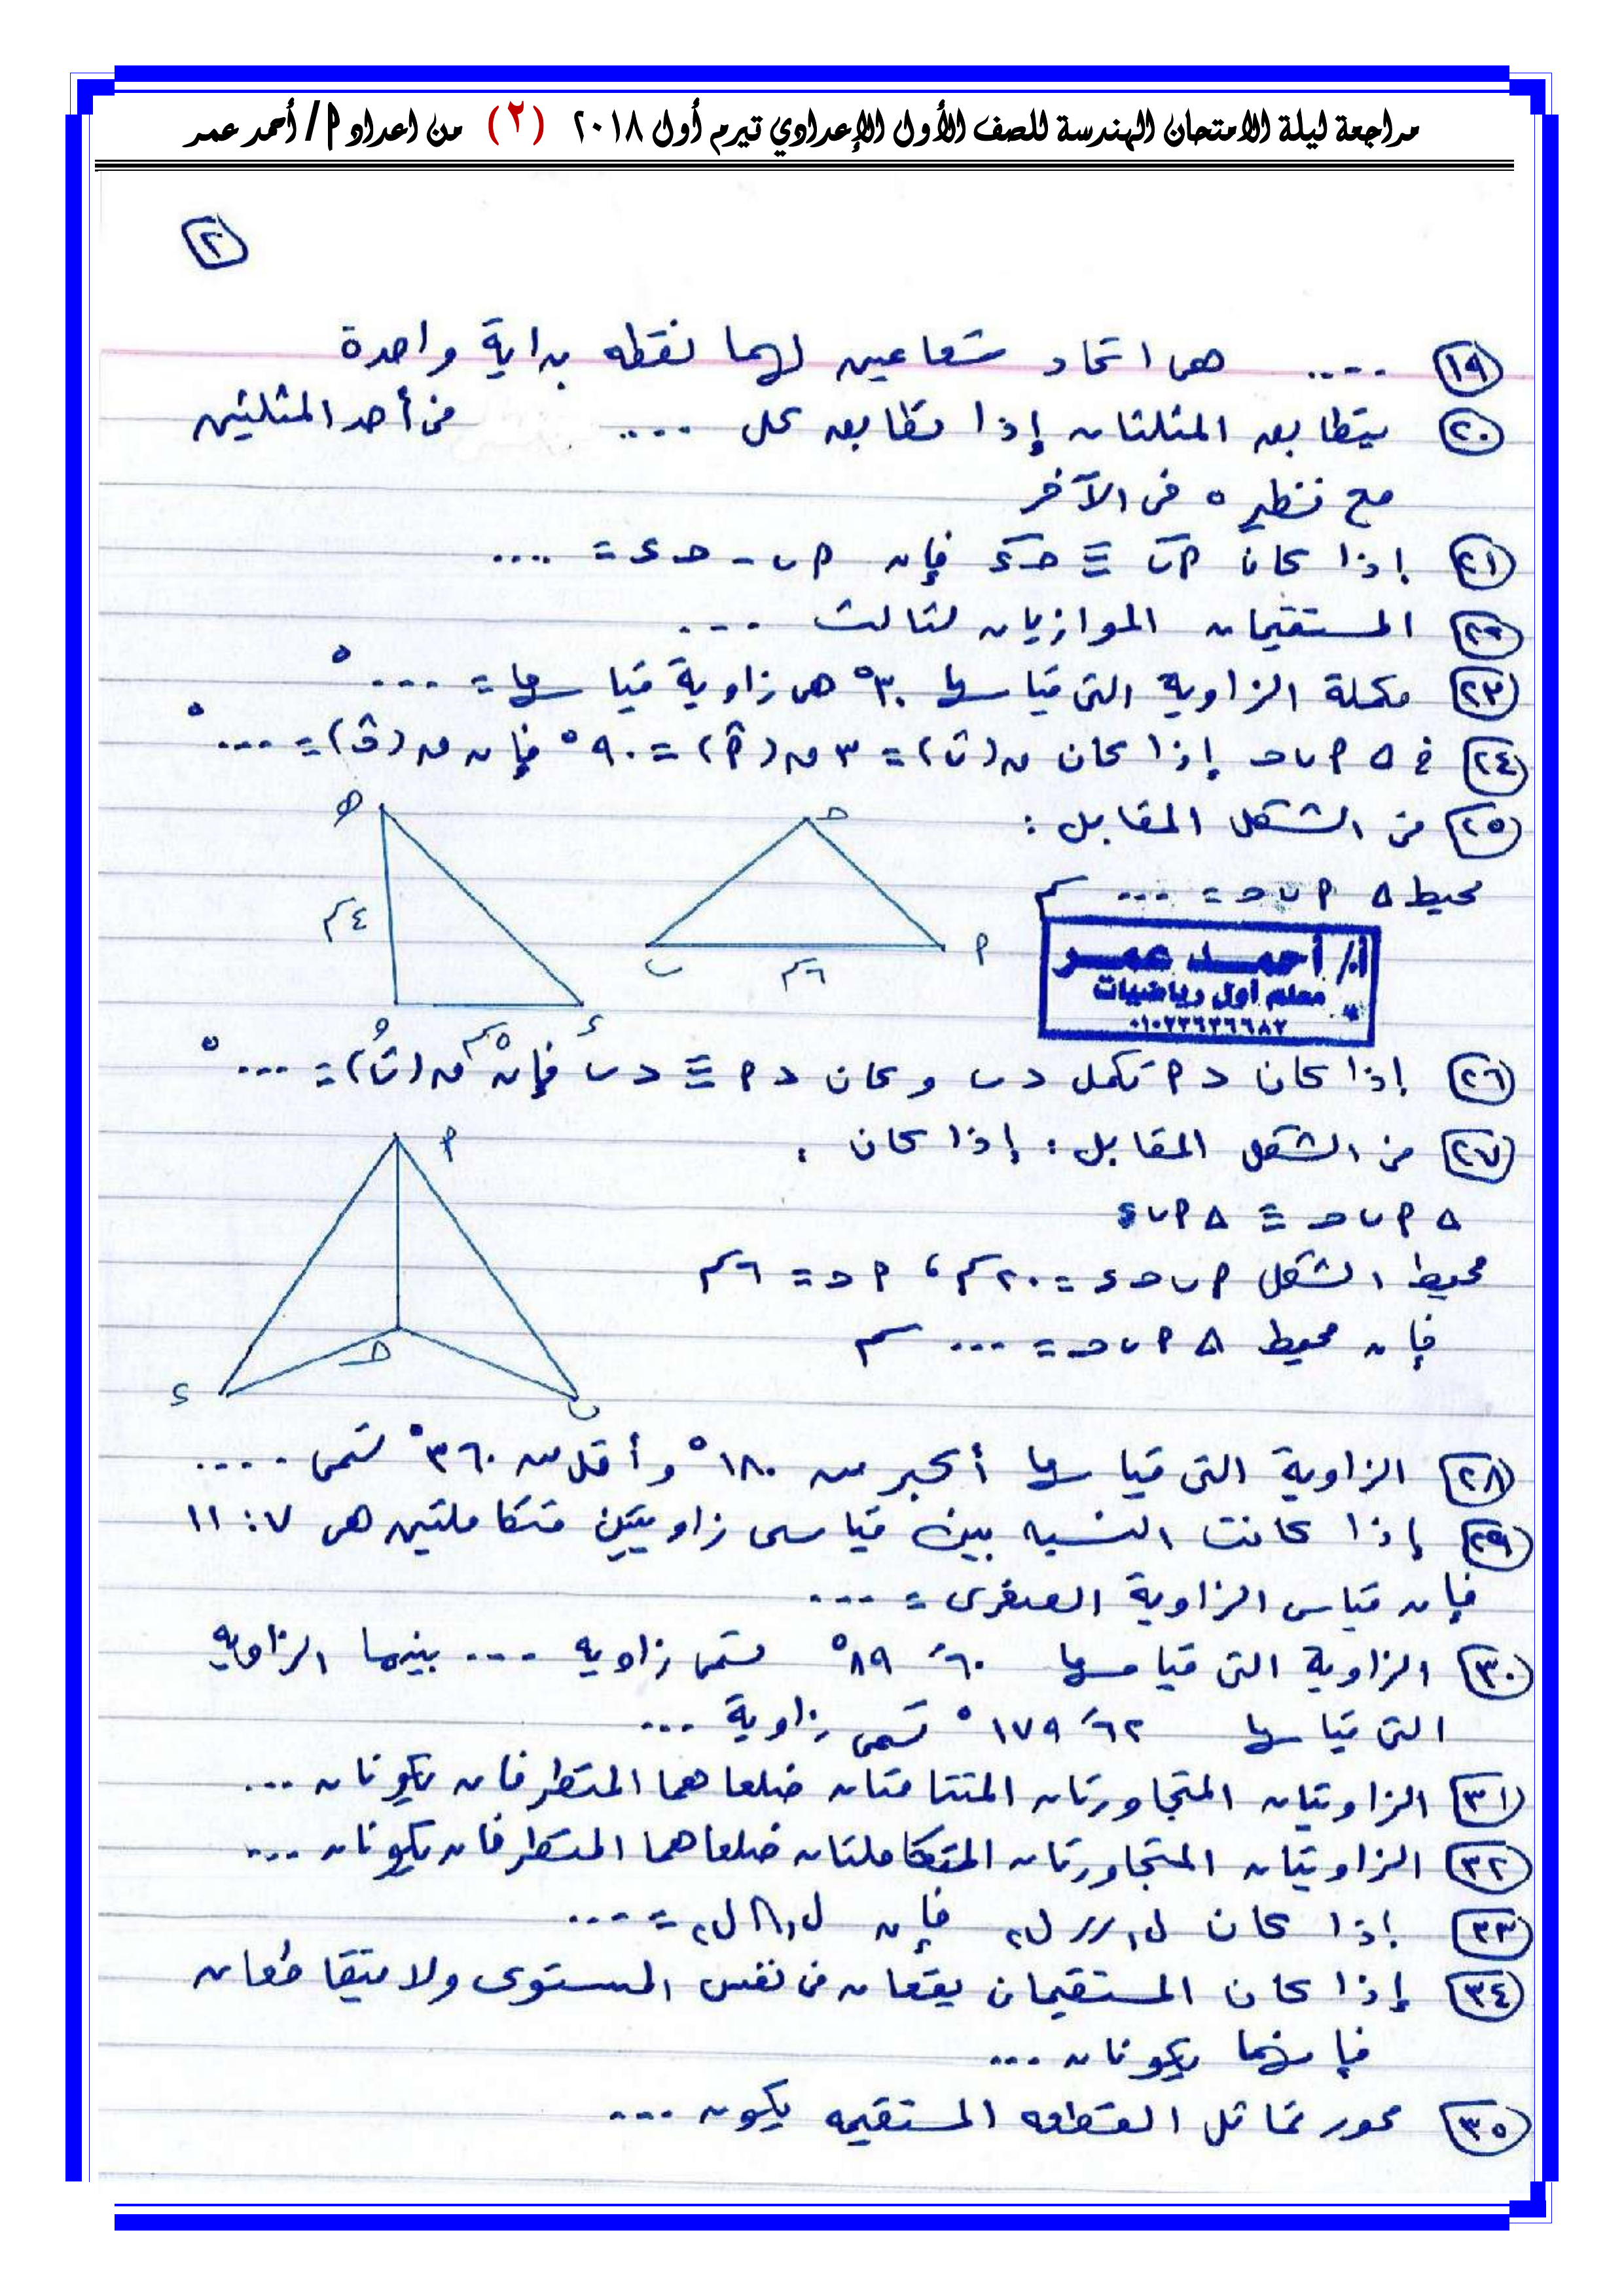 مراجعة ليلة الامتحان الهندسة للصف الأول الإعدادي تيرم أول ٢٠١٨ (٢) من اعداد أ/ أحمد عمر
٢
١٩ .... هى اتحاد شعاعين لهما نقطه بداية واحدة
٢٠ يتطابق المثلثان إذا تطابق كل .... فى أحد المثلثين
مع نظيره فى الآخر
٢١ إذا كان أب ≡ جـء فإن أب - جـء = ....
٢٢ المستقيمان الموازيان لثالث ...
٢٣ مكملة الزاوية التى قياسها ٣٠° هى زاوية قياسها = ...°
٢٤ فى Δ أ ب جـ إذا كان ق(ب) = ٣ ق(أ) = ٩٠° فإن ق(جـ) = ...°
٢٥ من الشكل المقابل :
محيط Δ أ ب جـ = ... سم
هـ
٤سم
و
٥سم
ء
جـ
ب
٦سم
أ
أ/ أحمد عمر
معلم أول رياضيات
٢٦ إذا كان د أ تكمل د ب وكان د أ ≡ د ب فإن ق(ب) = ...°
٢٧ من الشكل المقابل : إذا كان :
Δ أ ب جـ ≡ Δ أ ب ء
محيط الشكل أ ب جـ ء = ٢٠سم ، أ جـ = ٦سم
فإن محيط Δ أ ب جـ = ... سم
أ
جـ
ء
ب
٢٨ الزاوية التى قياسها أكبر من ١٨٠° وأقل من ٣٦٠° تسمى ....
٢٩ إذا كانت النسبه بين قياسى زاويتين متكاملتين هى ٧ : ١١
فإن قياس الزاوية الصغرى = ...
٣٠ الزاوية التى قياسها ٦٠َ ٨٩° تسمى زاويه ... بينما الزاويه
التى قياسها ٦٢َ ١٧٩° تسمى زاوية ...
٣١ الزاويتان المتجاورتان المتتامتان ضلعاهما المتطرفان يكونان ...
٣٢ الزاويتان المتجاورتان المتكاملتان ضلعاهما المتطرفان يكونان ...
٣٣ إذا كان ل١ // ل٢ فإن ل١ ∩ ل٢ = ...
٣٤ إذا كان المستقيمان يقعان فى نفس المستوى ولا يتقاطعان
فإنهما يكونان ...
٣٥ محور تماثل القطعه المستقيمه يكون ...